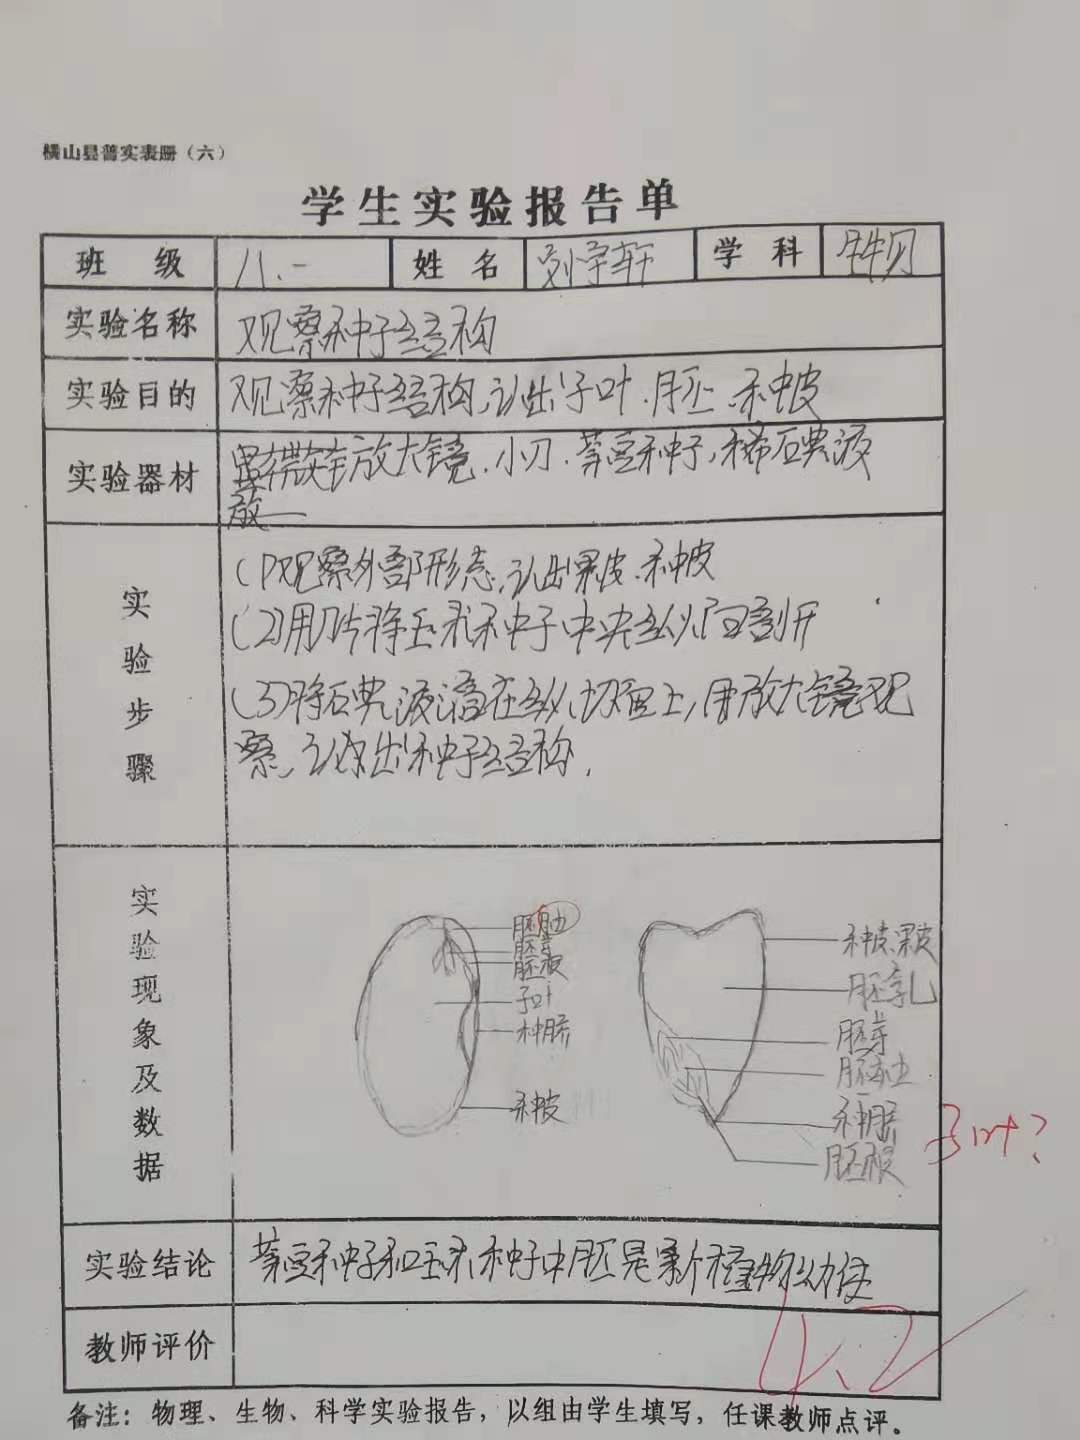 横山县普实表册（六）
学生实验报告单
班 级 八.一 姓 名 刘宇轩 学 科
实验名称 观察种子结构
实验目的 观察种子结构,认出子叶.胚.种皮
实验器材 放大镜.小刀.菜豆种子,稀石典液
放
实验步骤
(1)观察外部形态,认出果皮.种皮
(2)用刀片将玉米种子中央纵向剖开
(3)将石典液滴在纵切面上,用放大镜观
察,认出种子结构.
实验现象及数据
胚轴
胚芽
胚根
子叶
种脐
种皮
种皮.果皮
胚乳
胚芽
胚轴
种脐
胚根
子叶?
实验结论 菜豆种子和玉米种子中胚是新植物幼体
教师评价 4.2
备注：物理、生物、科学实验报告，以组由学生填写，任课教师点评。